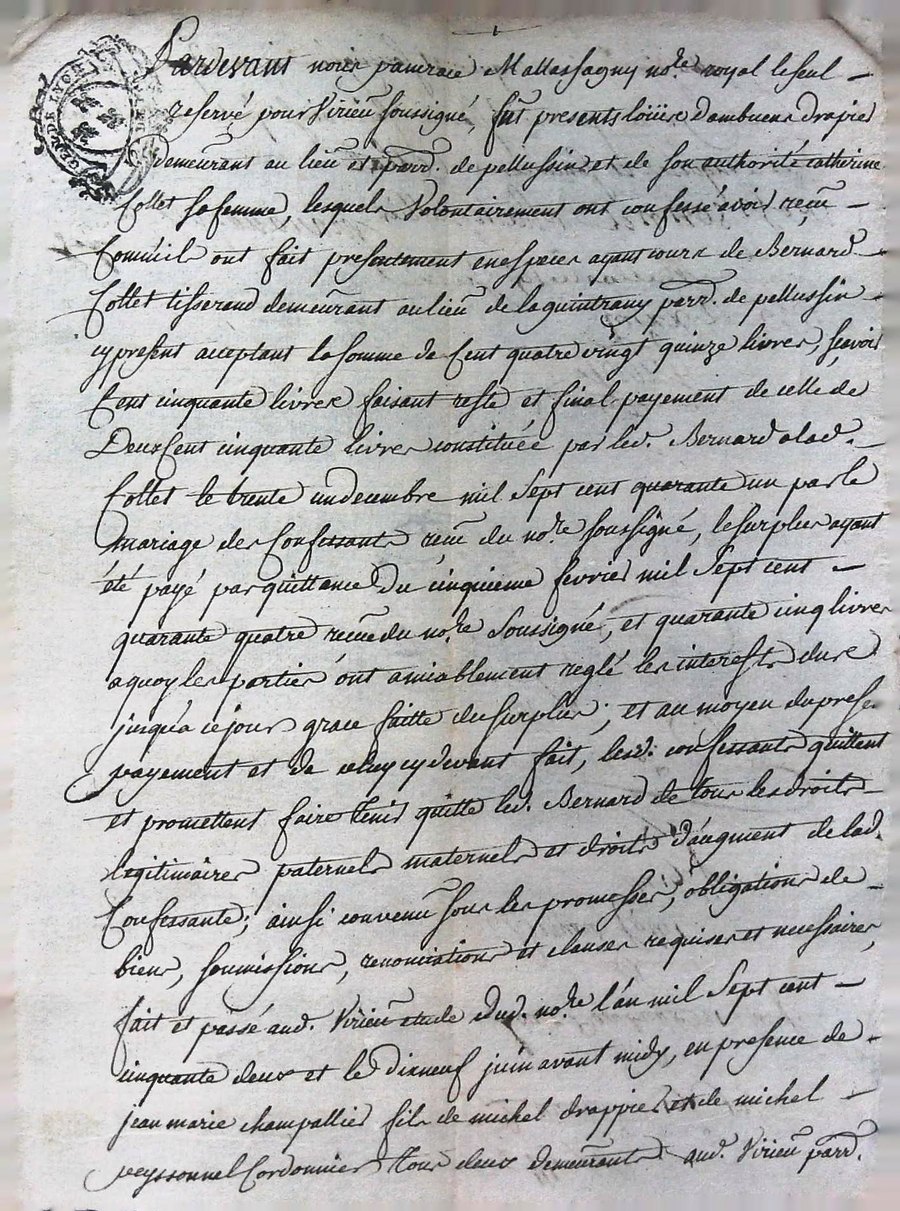 Pardevant nous pancrace Mattassagny no.re royal le seul –
reservé pour Virieu soussigné, fut presents loüis dambuens drapier
demeurant au lieu et parr. de pellussin et de son authorité catherine
Collet sa femme, lesquels volontairement ont confessé avoir reçeu –
Comm'ils ont fait presentement en espèces ayant cours de Bernard
Collet tisserand demeurant au lieu de laguintrany parr. de pellussin
cy present acceptant la somme de Cent quatre vingt quinze livres, sçavoir
Cent cinquante livres faisant reste et final payement de celle de
Deux Cent cinquante livres constituée par led. Bernard a lad.
Collet le trente un decembre mil sept cent quarante un par le
mariage des Confessants reçeu du no.re soussigné, le surplus ayant
été payé par quittance du cinquieme fevrier mil sept cent –
quarante quatre reçue du no.re soussigné, et quarante cinq livres
a quoy les parties ont amiablement reglé les interests dus
jusqu'a ce jour grace faitte du surplus; et au moyen du prese.
payement et de celuy cy devant fait, lesd. confessants quittent
et promettent faire tenir quitte led. Bernard de tous les droits
legitimaires paternels maternels et droits d'augment de lad.
Confessante; ainsi convenu sous les promesses, obligations de –
biens, soumissions, renonciations et clauses requises et necessaires
fait et passé aud. Virieu etude dud. no.re l'an mil sept cent –
cinquante deux et le dixneuf juin avant midy, en presence de –
jean marie champallier fils de michel drappier et de michel –
peyssonnel Cordonnier tous deux demeurants aud. Virieu parr.
GEN. DE LYON